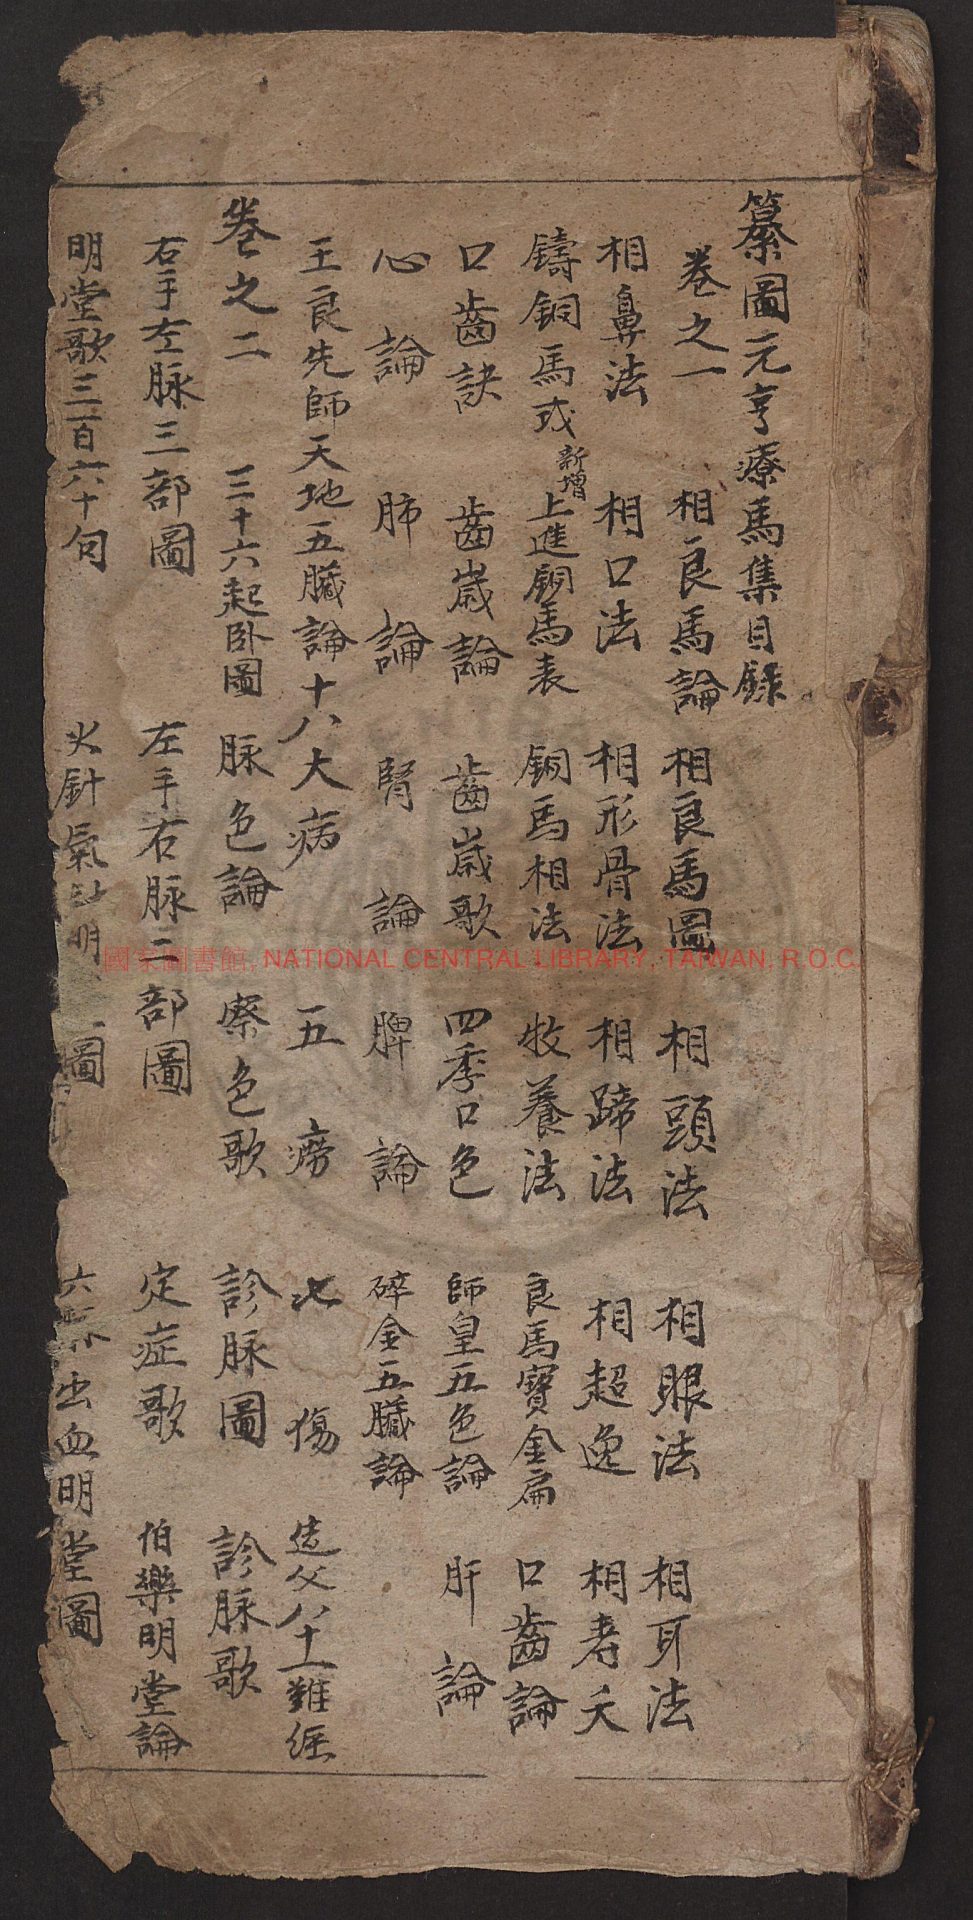 纂圖元亨療馬集目錄
卷之一 相良馬論 相良馬圖 相頭法 相眼法 相耳法
相鼻法 相口法 相形骨法 相蹄法 相超逸 相壽夭
鑄銅馬式 新增 上進銅馬表 銅馬相法 牧養法 良馬寶金扁 口齒論
口齒訣 齒歲論 齒歲歌 四季口色 師皇五色論 肝論
心論 肺論 腎論 脾論 碎金五臟論
王良先師天地五臟論 十八大病 五癆 七傷 造父八十一難經
卷之二 三十六起卧圖 脉色論 察色歌 診脉圖 診脉歌
右手左脉三部圖 左手右脉三部圖 定症歌 伯樂明堂論
明堂歌三百六十句 火針氣針明 圖 六脉出血明堂圖
國家圖書館, NATIONAL CENTRAL LIBRARY, TAIWAN, R.O.C.